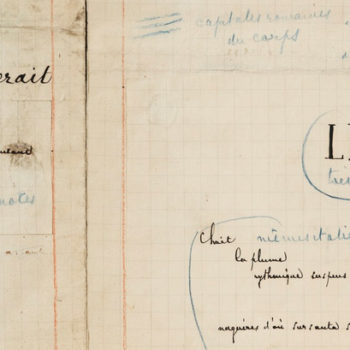 erait
capitales romaines
du corps
autant
Choit même itali
la plume
rythmique suspens
naguères d'où sursauta s